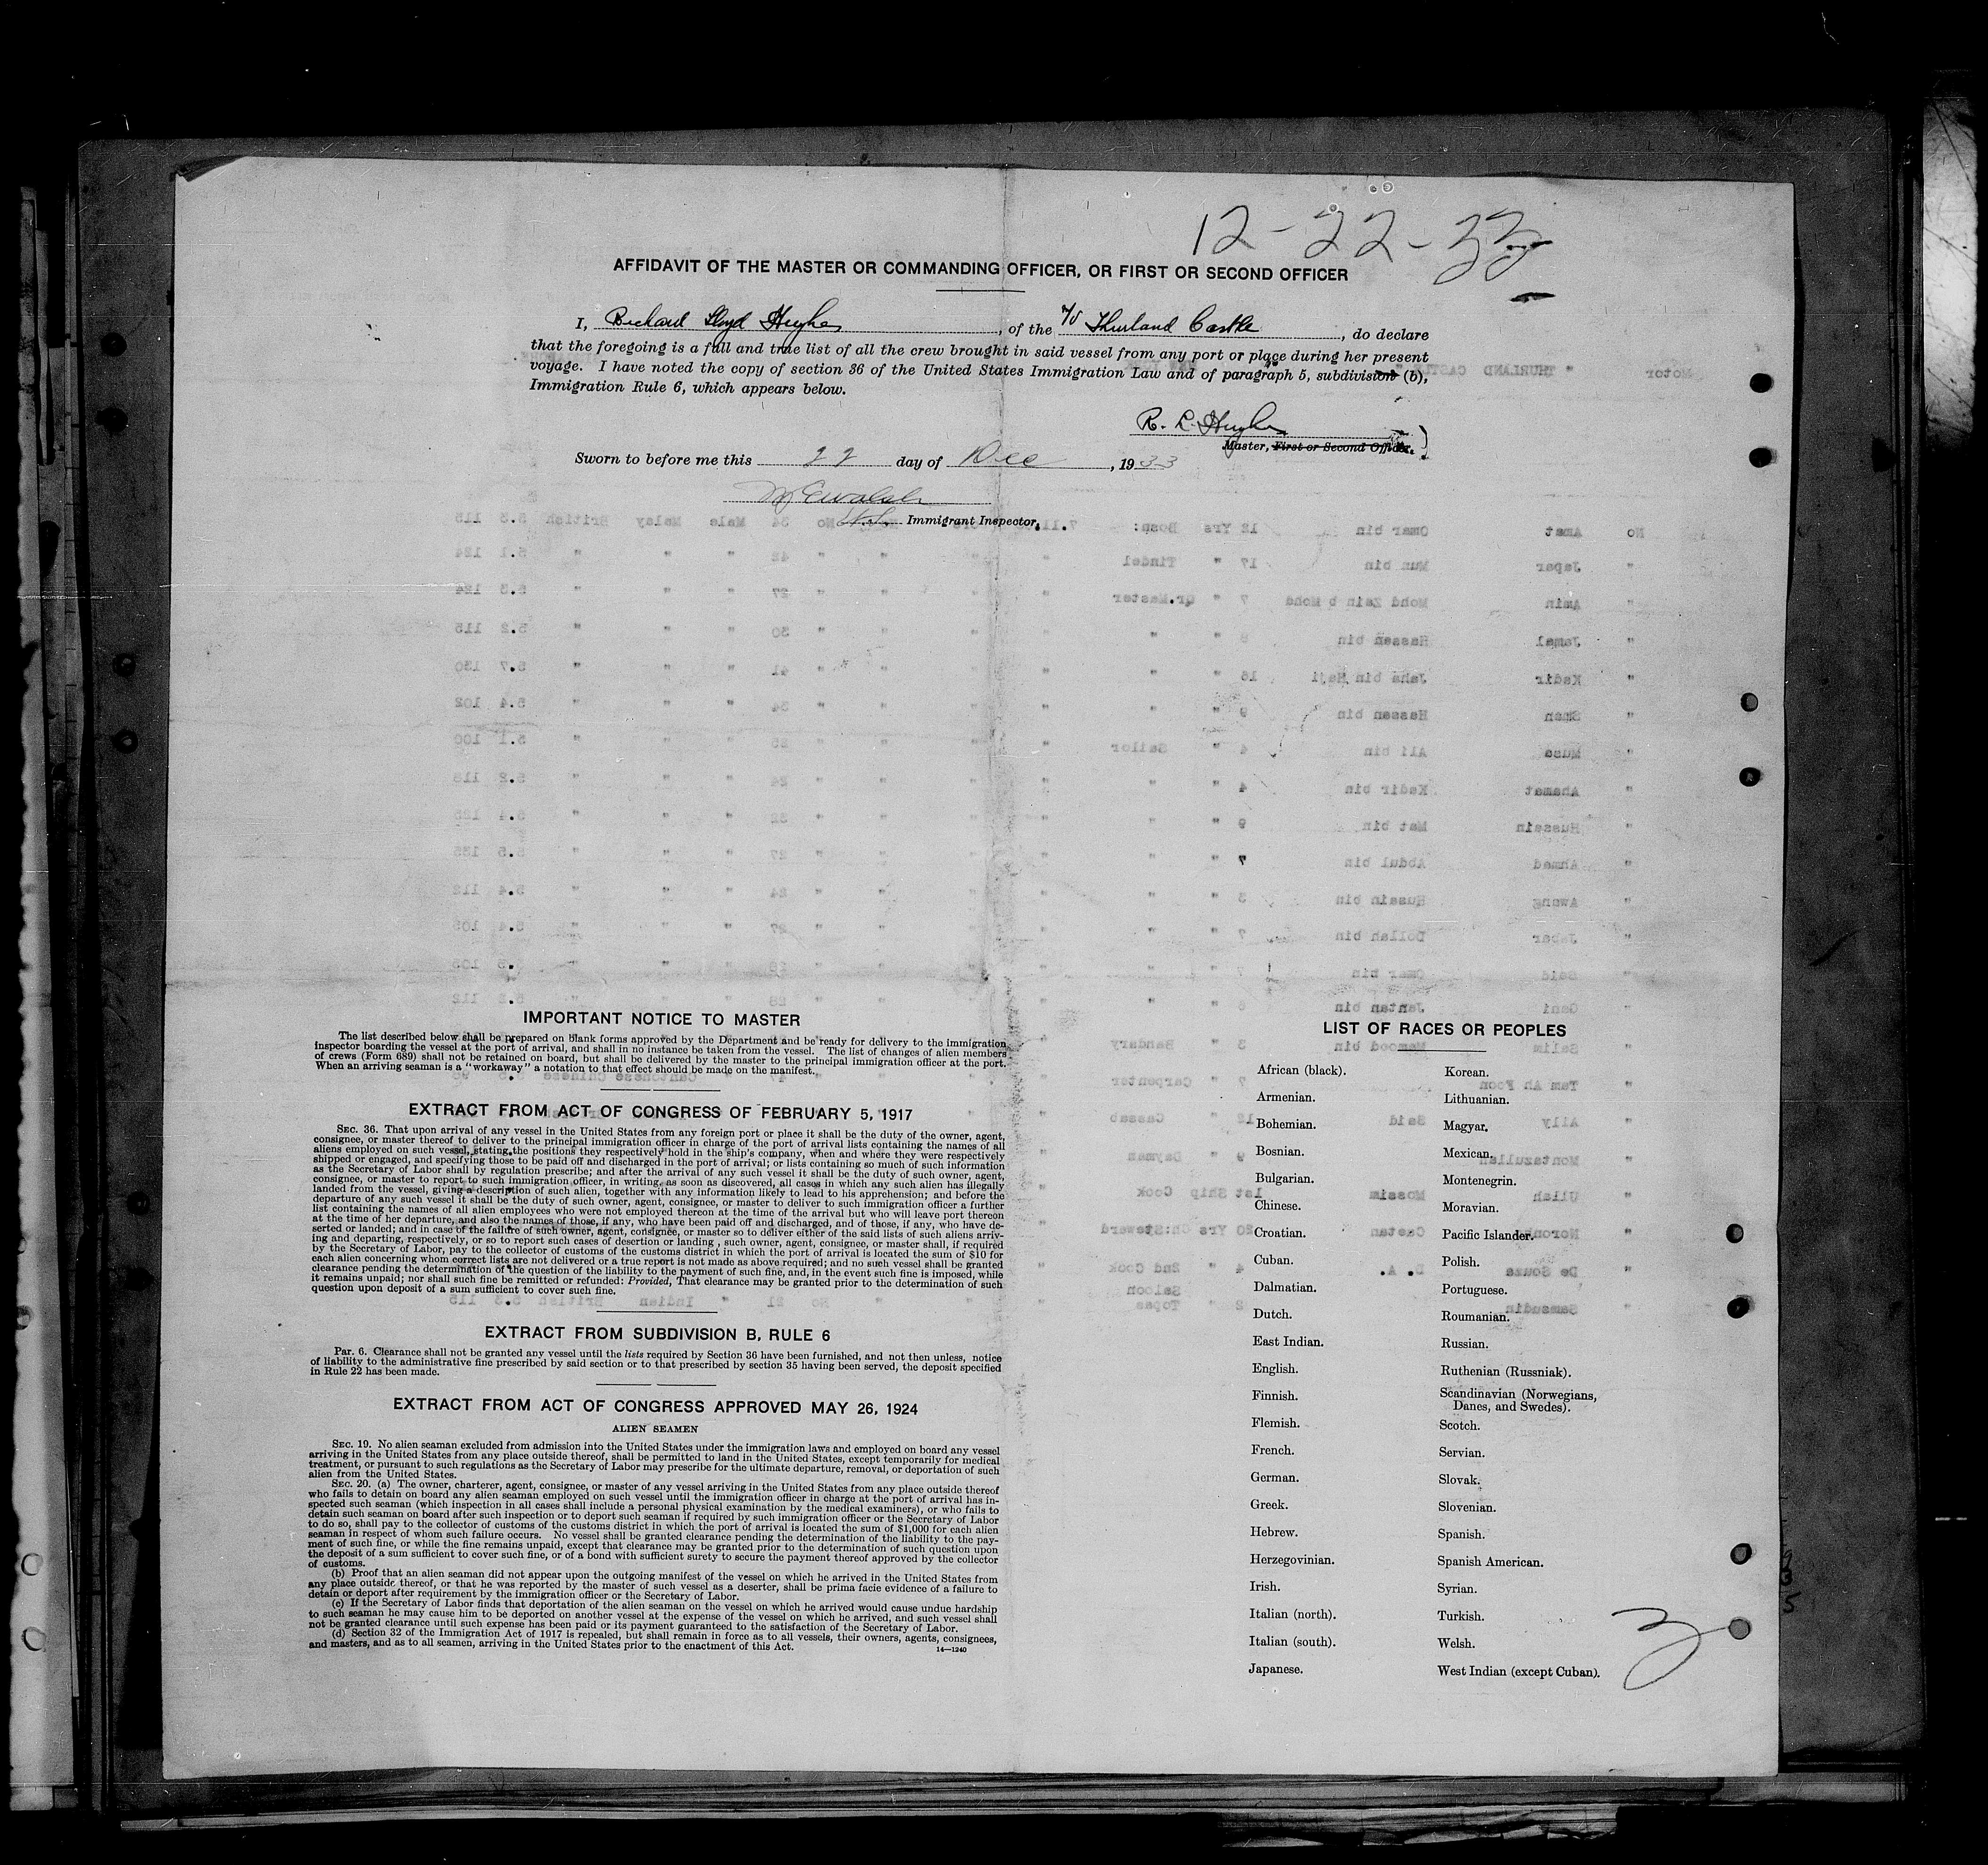 12-22-33
AFFIDAVIT OF THE MASTER OR COMMANDING OFFICER, OR FIRST OR SECOND OFFICER
I, Richard Lloyd Hughes, of the M/V Thurland Castle, do declare
that the foregoing is a full and true list of all the crew brought in said vessel from any port or place during her present
voyage. I have noted the copy of section 36 of the United States Immigration Law and of paragraph 5, subdivision (b),
Immigration Rule 6, which appears below.
R. L. Hughes
Master, First or Second Officer.
Sworn to before me this 22 day of Dec, 1933
Immigrant Inspector.
IMPORTANT NOTICE TO MASTER
The list described below shall be prepared on blank forms approved by the Department and be ready for delivery to the immigration
inspector boarding the vessel at the port of arrival, and shall in no instance be taken from the vessel. The list of changes of alien members
of crews (Form 689) shall not be retained on board, but shall be delivered by the master to the principal immigration officer at the port.
When an arriving seaman is a "workaway" a notation to that effect should be made on the manifest.
EXTRACT FROM ACT OF CONGRESS OF FEBRUARY 5, 1917
SEC. 36. That upon arrival of any vessel in the United States from any foreign port or place it shall be the duty of the owner, agent,
consignee, or master thereof to deliver to the principal immigration officer in charge of the port of arrival lists containing the names of all
aliens employed on such vessel, stating the positions they respectively hold in the ship's company, when and where they were respectively
shipped or engaged, and specifying those to be paid off and discharged in the port of arrival; or lists containing so much of such information
as the Secretary of Labor shall by regulation prescribe; and after the arrival of any such vessel it shall be the duty of such owner, agent,
consignee, or master to report to such immigration officer, in writing, as soon as discovered, all cases in which any such alien has illegally
landed from the vessel, giving a description of such alien, together with any information likely to lead to his apprehension; and before the
departure of any such vessel it shall be the duty of such owner, agent, consignee, or master to deliver to such immigration officer a further
list containing the names of all alien employees who were not employed thereon at the time of the arrival but who will leave port thereon
at the time of her departure, and also the names of those, if any, who have been paid off and discharged, and of those, if any, who have de-
serted or landed; and in case of the failure of such owner, agent, consignee, or master so to deliver either of the said lists of such aliens arriv-
ing and departing, respectively, or so to report such cases of desertion or landing, such owner, agent, consignee, or master shall, if required
by the Secretary of Labor, pay to the collector of customs of the customs district in which the port of arrival is located the sum of $10 for
each alien concerning whom correct lists are not delivered or a true report is not made as above required; and no such vessel shall be granted
clearance pending the determination of the question of the liability to the payment of such fine, and, in the event such fine is imposed, while
it remains unpaid; nor shall such fine be remitted or refunded: Provided, That clearance may be granted prior to the determination of such
question upon deposit of a sum sufficient to cover such fine.
EXTRACT FROM SUBDIVISION B, RULE 6
Par. 6. Clearance shall not be granted any vessel until the lists required by Section 36 have been furnished, and not then unless, notice
of liability to the administrative fine prescribed by said section or to that prescribed by section 35 having been served, the deposit specified
in Rule 22 has been made.
EXTRACT FROM ACT OF CONGRESS APPROVED MAY 26, 1924
ALIEN SEAMEN
SEC. 19. No alien seaman excluded from admission into the United States under the immigration laws and employed on board any vessel
arriving in the United States from any place outside thereof, shall be permitted to land in the United States, except temporarily for medical
treatment, or pursuant to such regulations as the Secretary of Labor may prescribe for the ultimate departure, removal, or deportation of such
alien from the United States.
SEC. 20. (a) The owner, charterer, agent, consignee, or master of any vessel arriving in the United States from any place outside thereof
who fails to detain on board any alien seaman employed on such vessel until the immigration officer in charge at the port of arrival has in-
spected such seaman (which inspection in all cases shall include a personal physical examination by the medical examiners), or who fails to
detain such seaman on board after such inspection or to deport such seaman if required by such immigration officer or the Secretary of Labor
to do so, shall pay to the collector of customs of the customs district in which the port of arrival is located the sum of $1,000 for each alien
seaman in respect of whom such failure occurs. No vessel shall be granted clearance pending the determination of the liability to the pay-
ment of such fine, or while the fine remains unpaid, except that clearance may be granted prior to the determination of such question upon
the deposit of a sum sufficient to cover such fine, or of a bond with sufficient surety to secure the payment thereof approved by the collector
of customs.
(b) Proof that an alien seaman did not appear upon the outgoing manifest of the vessel on which he arrived in the United States from
any place outside thereof, or that he was reported by the master of such vessel as a deserter, shall be prima facie evidence of a failure to
detain or deport after requirement by the immigration officer or the Secretary of Labor.
(c) If the Secretary of Labor finds that deportation of the alien seaman on the vessel on which he arrived would cause undue hardship
to such seaman he may cause him to be deported on another vessel at the expense of the vessel on which he arrived, and such vessel shall
not be granted clearance until such expense has been paid or its payment guaranteed to the satisfaction of the Secretary of Labor.
(d) Section 32 of the Immigration Act of 1917 is repealed, but shall remain in force as to all vessels, their owners, agents, consignees,
and masters, and as to all seamen, arriving in the United States prior to the enactment of this Act.
14—1240
LIST OF RACES OR PEOPLES
African (black).
Armenian.
Bohemian.
Bosnian.
Bulgarian.
Chinese.
Croatian.
Cuban.
Dalmatian.
Dutch.
East Indian.
English.
Finnish.
Flemish.
French.
German.
Greek.
Hebrew.
Herzegovinian.
Irish.
Italian (north).
Italian (south).
Japanese.
Korean.
Lithuanian.
Magyar.
Mexican.
Montenegrin.
Moravian.
Pacific Islander.
Polish.
Portuguese.
Roumanian.
Russian.
Ruthenian (Russniak).
Scandinavian (Norwegians,
Danes, and Swedes).
Scotch.
Servian.
Slovak.
Slovenian.
Spanish.
Spanish American.
Syrian.
Turkish.
Welsh.
West Indian (except Cuban).
3